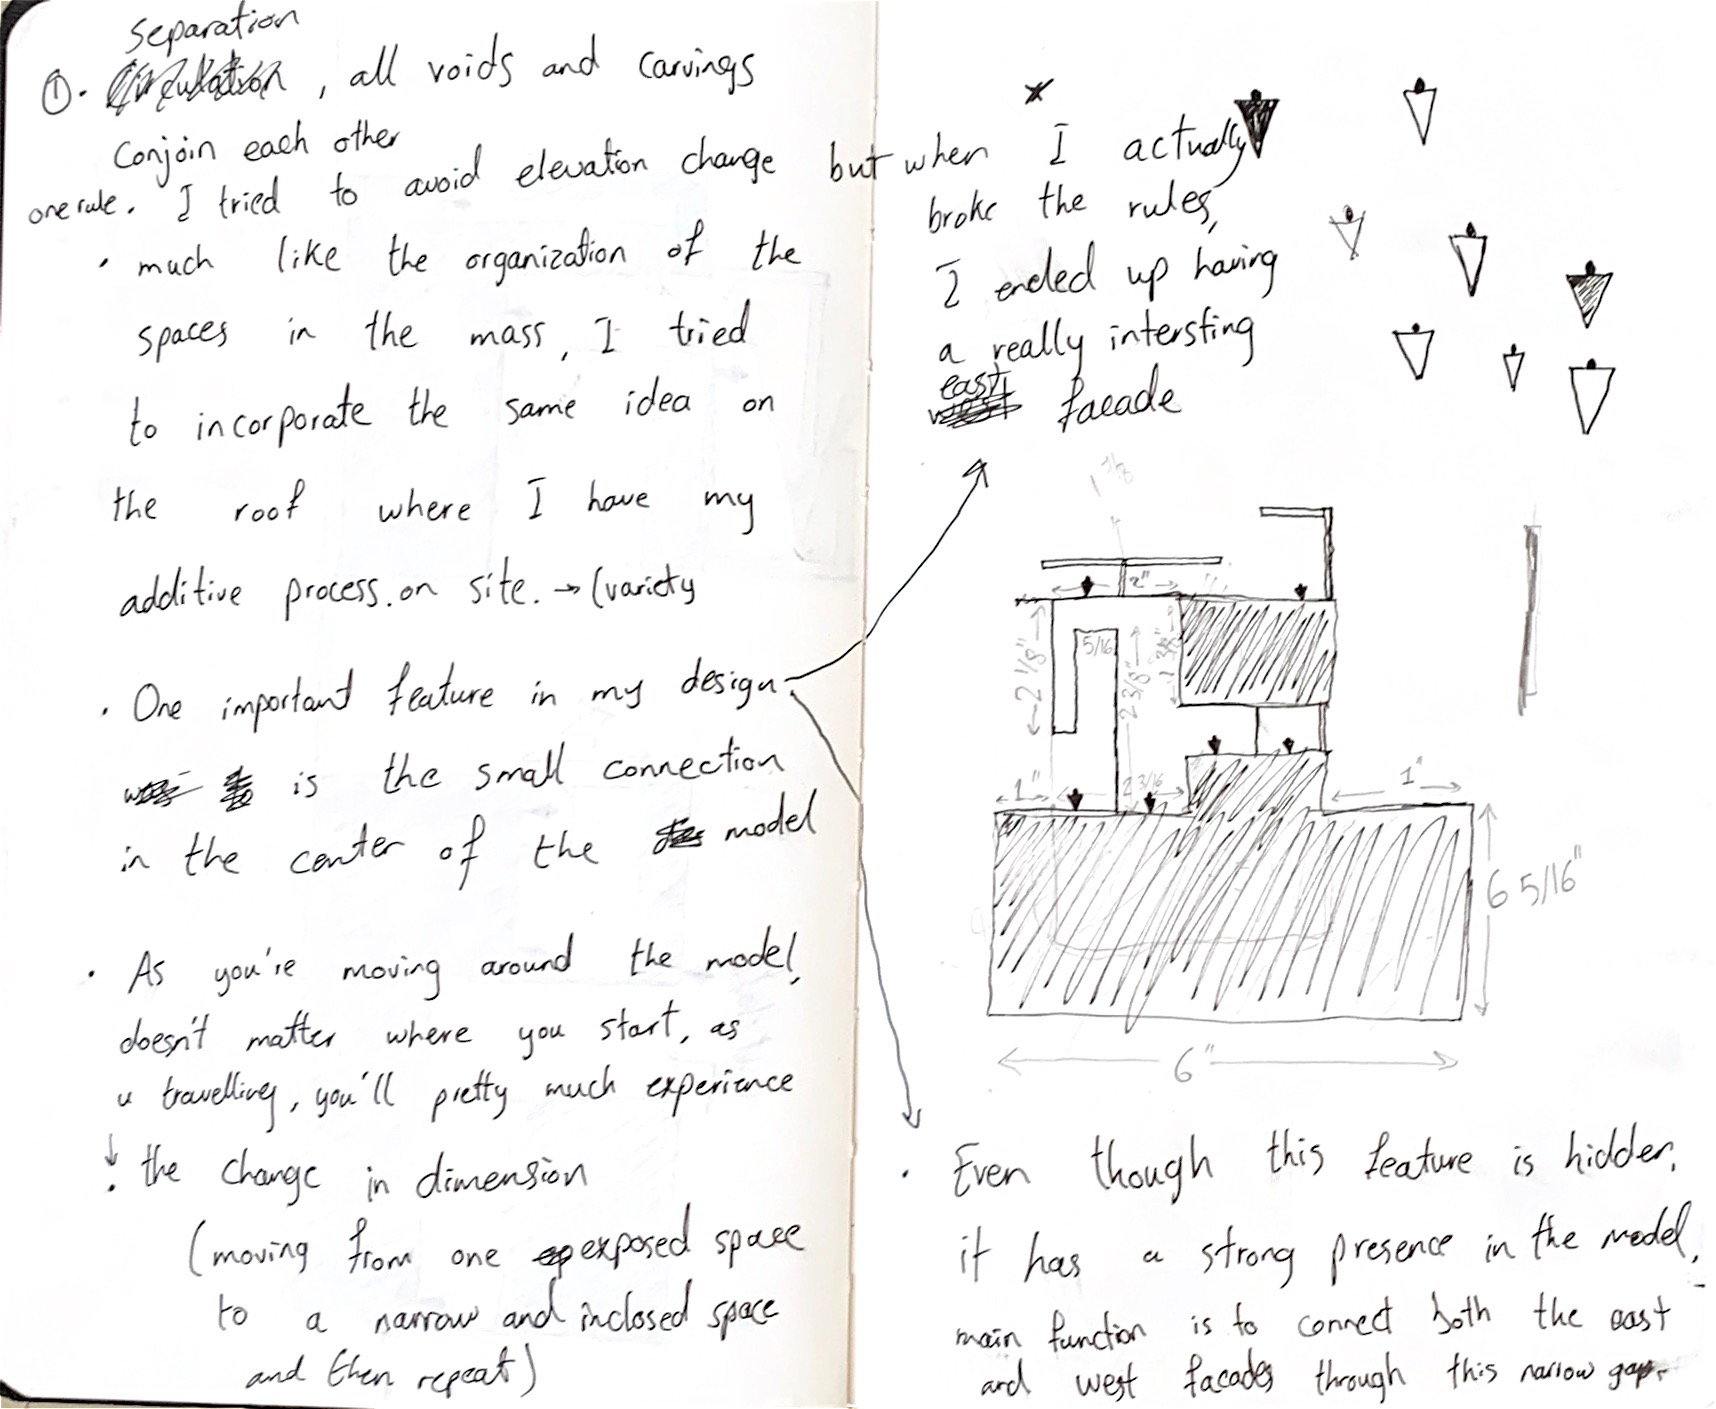 separation
①. Circulation, all voids and carvings
conjoin each other
one rule. I tried to avoid elevation change but when I actually
broke the rules,
I ended up having
a really intersting
east
west facade
• much like the organization of the
spaces in the mass, I tried
to incorporate the same idea on
the roof where I have my
additive process. on site. → (variety
• One important feature in my design
is the small connection
in the center of the model
• As you're moving around the model,
doesn't matter where you start, as
u travelling, you'll pretty much experience
• the change in dimension
(moving from one exposed space
to a narrow and inclosed space
and then repeat)
1 7/8
2"
5/16
2 1/8"
2 3/8"
1 3/8"
1"
2 3/16
1"
6 5/16"
6"
• Even though this feature is hidden,
it has a strong presence in the model,
main function is to connect both the east
and west facades through this narrow gap.